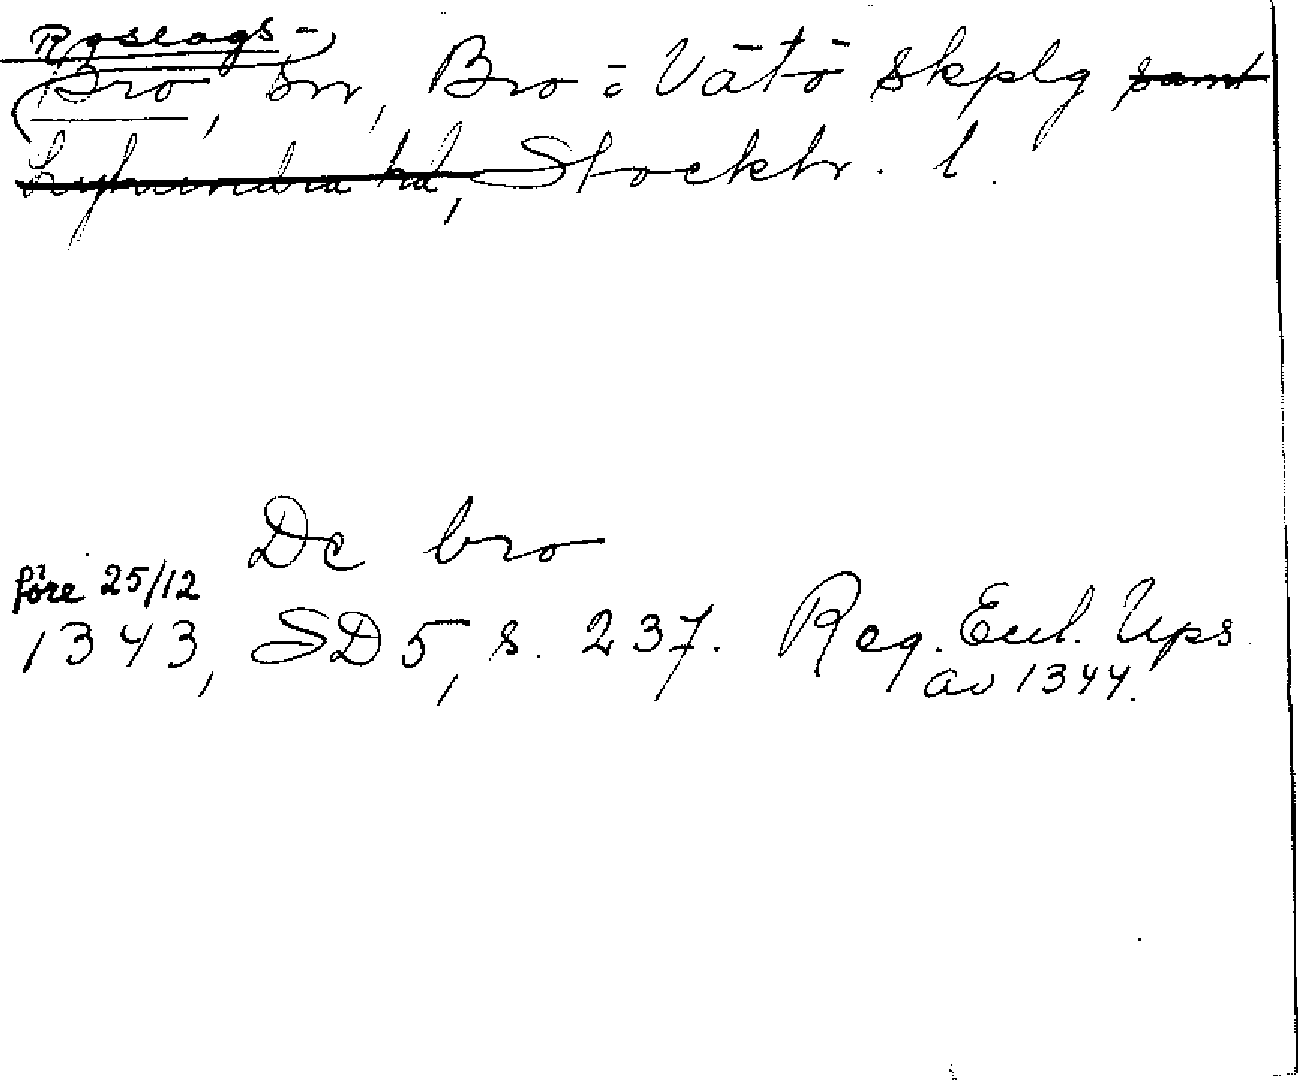 Roslags-
Bro, sn, Bro = Vätö skplg samt
Lyhundra hd, Stockh. l.
De bro
före 25/12
1343, SD 5, s. 237. Reg. Eccl. Ups.
av 1344.